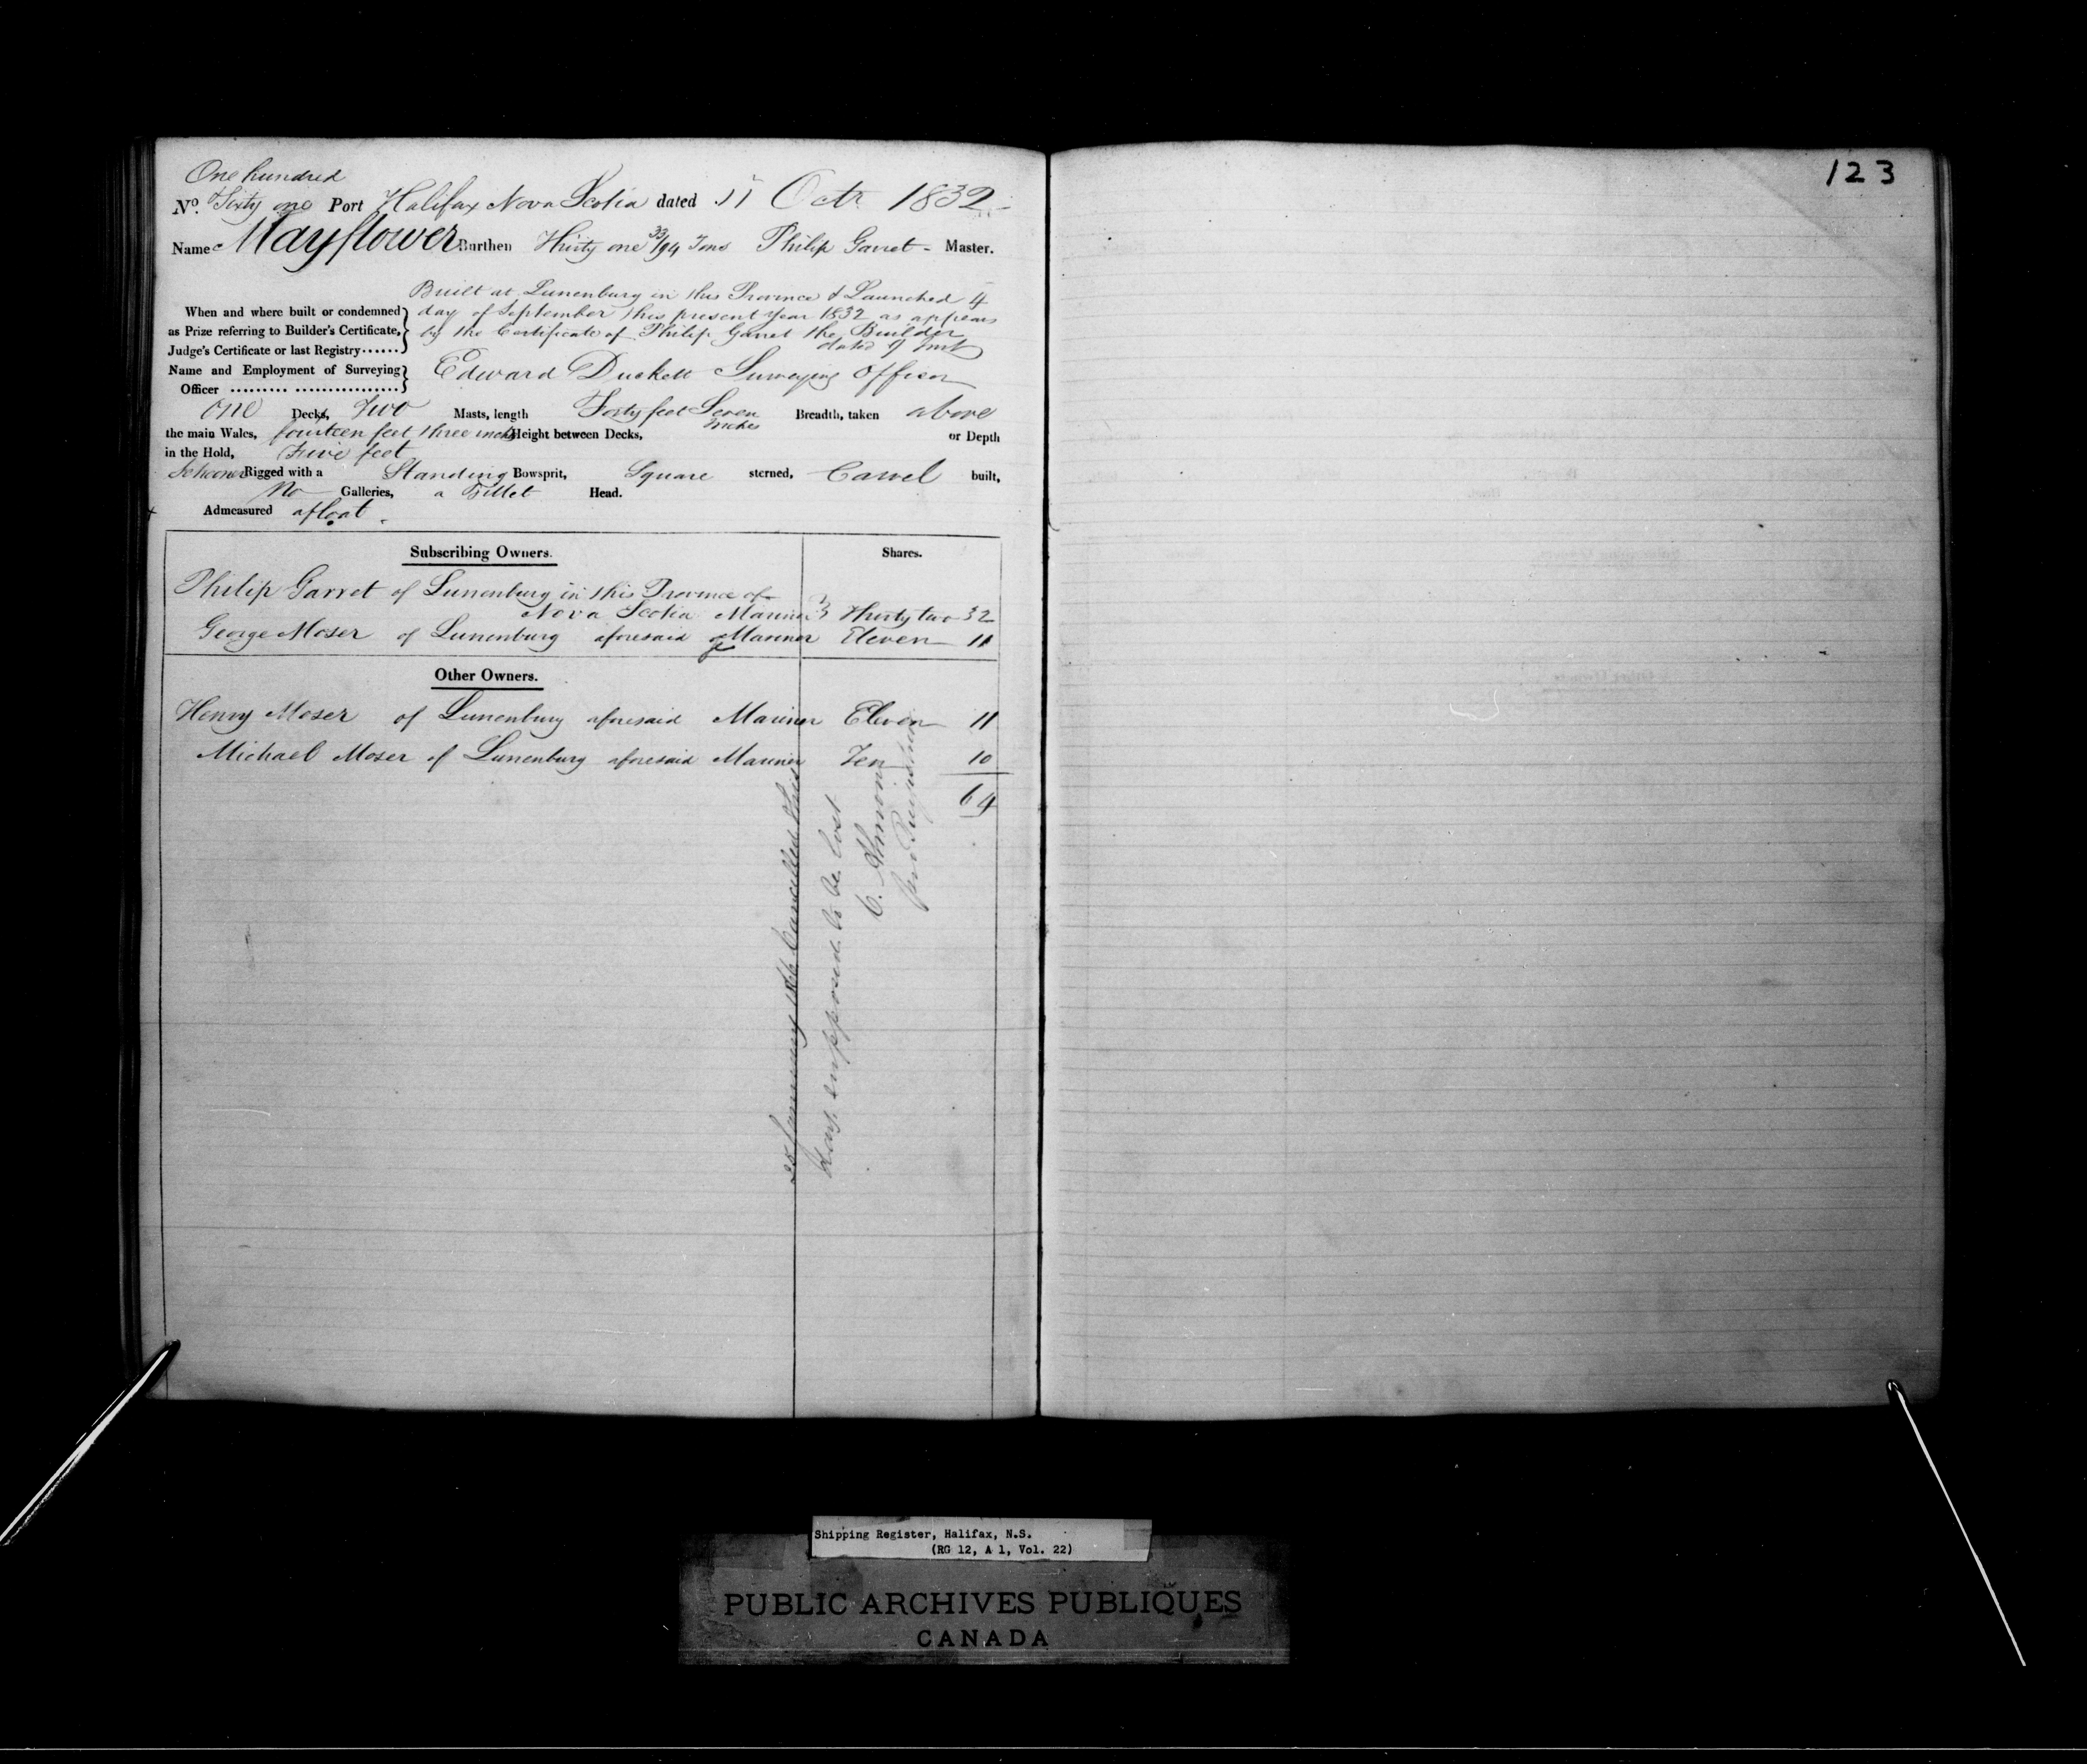 One hundred
No. Sixty one Port Halifax Nova Scotia dated 11 Octr 1832
Name Mayflower Burthen Thirty one 33/94 Tons Philip Garret - Master.
Built at Lunenburg in this Province & Launched 4
When and where built or condemned day of September this present year 1832 as appears
as Prize referring to Builder's Certificate, by the Certificate of Philip Garret the Builder
Judge's Certificate or last Registry...... dated 9 inst
Name and Employment of Surveying Edward Duckett Surveying Officer
Officer ......... ..................
One Decks, Two Masts, length Forty feet Seven inches Breadth, taken above
the main Wales, fourteen feet three inches Height between Decks, or Depth
in the Hold, Five feet
Schooner Rigged with a Standing Bowsprit, Square sterned, Carvel built,
No Galleries, a Billet Head.
Admeasured afloat.
Subscribing Owners. Shares.
Philip Garret of Lunenburg in this Province of
Nova Scotia Mariner Thirty two 32
George Moser of Lunenburg aforesaid Mariner Eleven 11
Other Owners.
Henry Moser of Lunenburg aforesaid Mariner Eleven 11
Michael Moser of Lunenburg aforesaid Mariner Ten 10
64
January Cancelled this
supposed to be lost
123
Shipping Register, Halifax, N.S.
(RG 12, A 1, Vol. 22)
PUBLIC ARCHIVES PUBLIQUES
CANADA